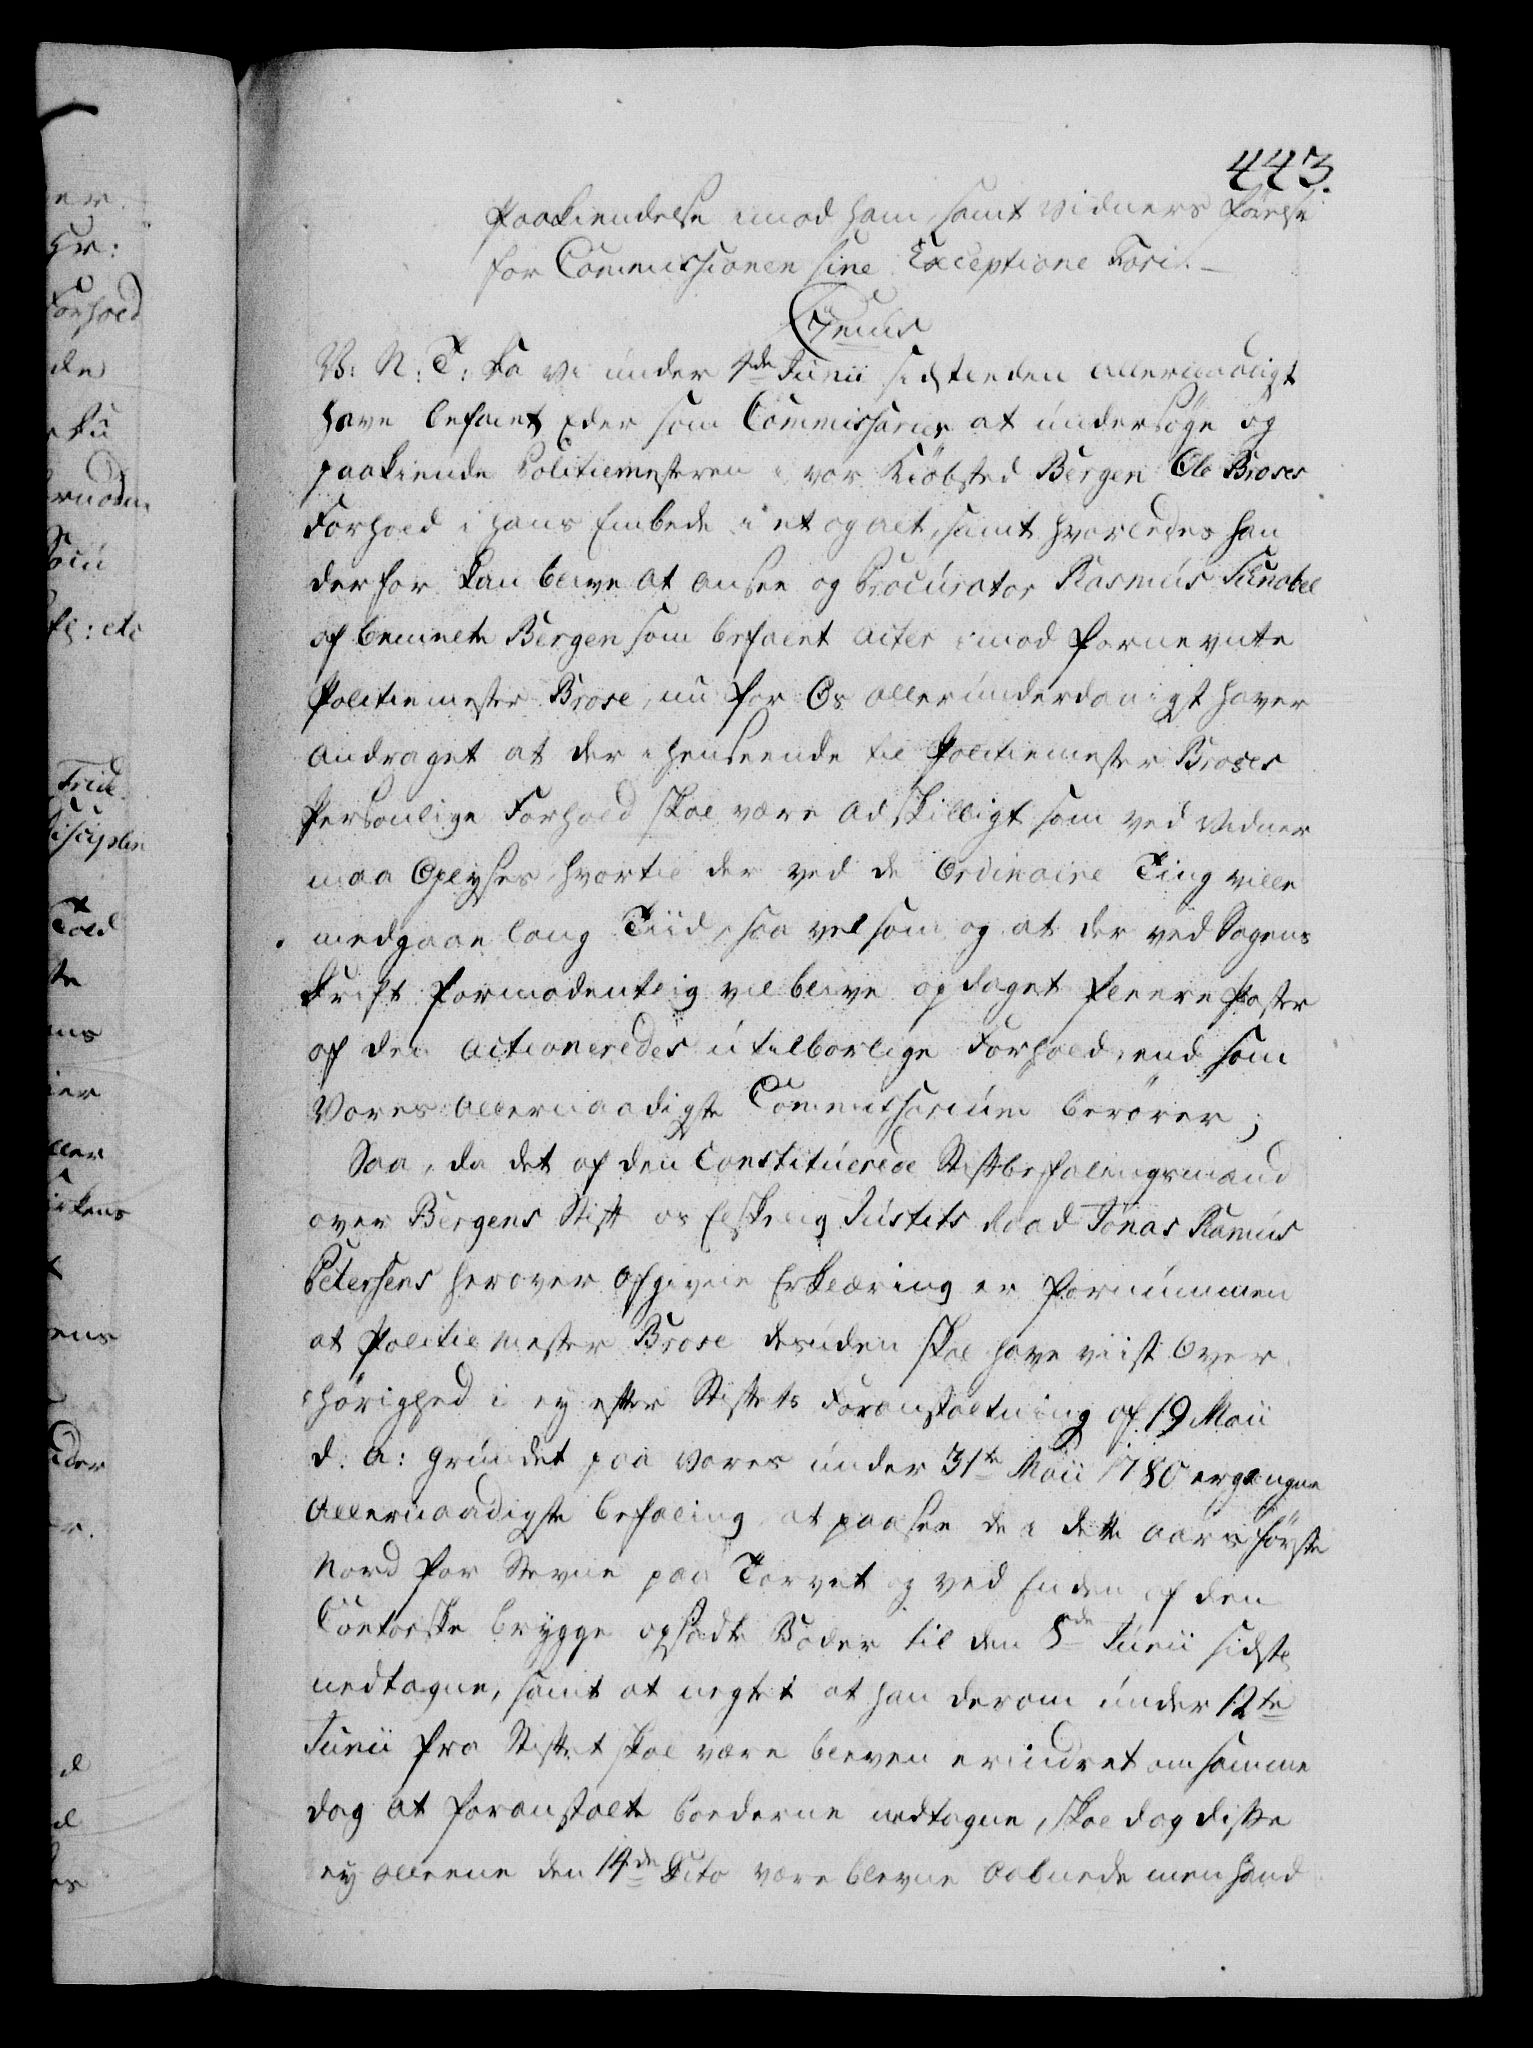 443.
Paakiendelse imod ham, samt Vidners Førelse
for Commissionen sine Exceptione Fori.
C 7mus
V: N: T: Da Vi under 4de Junii sidstleden allernaadigst
have befalet Eder som Commissarier at undersøge og
paakiende Politiemesteren i vor Kiöbsted Bergen Ole Broses
Forhold i hans Embede i et og alt, samt hvorledes han
derfor kan blive at ansee og Procurator Rasmus
af bemelte Bergen som befalet Actor imod fornevnte
Politiemester Brose, nu for Os allerunderdanigst haver
andraget at der i henseende til Politiemester Broses
Personlige Forhold skal være adskilligt som ved Vidner
maa Oplyses, hvortil der ved de Ordinaire Ting ville
medgaae lang Tiid, saa vel som og at der ved Sagens
Drift formodentlig vil blive opdaget fleere Poster
af den actioneredes utilbørlige Forhold, end som
Vores allernaadigste Commissorium berører;
Saa, da det af den Constituerede Stiftbefalingsmand
over Bergens Stift os Elskelig Justits Raad Jonas Ramus
Petersens herover afgivne Erklæring er fornummen
at Politiemester Brose desuden skal have viist Over-
hørighed i ey efter Stiftets Foranstaltning af 19 Maii
d: a: grundet paa Vores under 31te Maii 1780 ergangne
allernaadigste befaling at paasee de i dette Aars første
Nord for Stevne paa Torvet og ved Enden af den
Contorske brygge opsadte Boder til den 8de Junii sidstl
nedtagne, samt at uegtet at han derom under 12te
Junii fra Stiftet skal være bleven erindret om samme
dag at foranstalte boederne nedtagne, skal dog disse
ey alleene den 14de Dito være blevne aabnede men hand